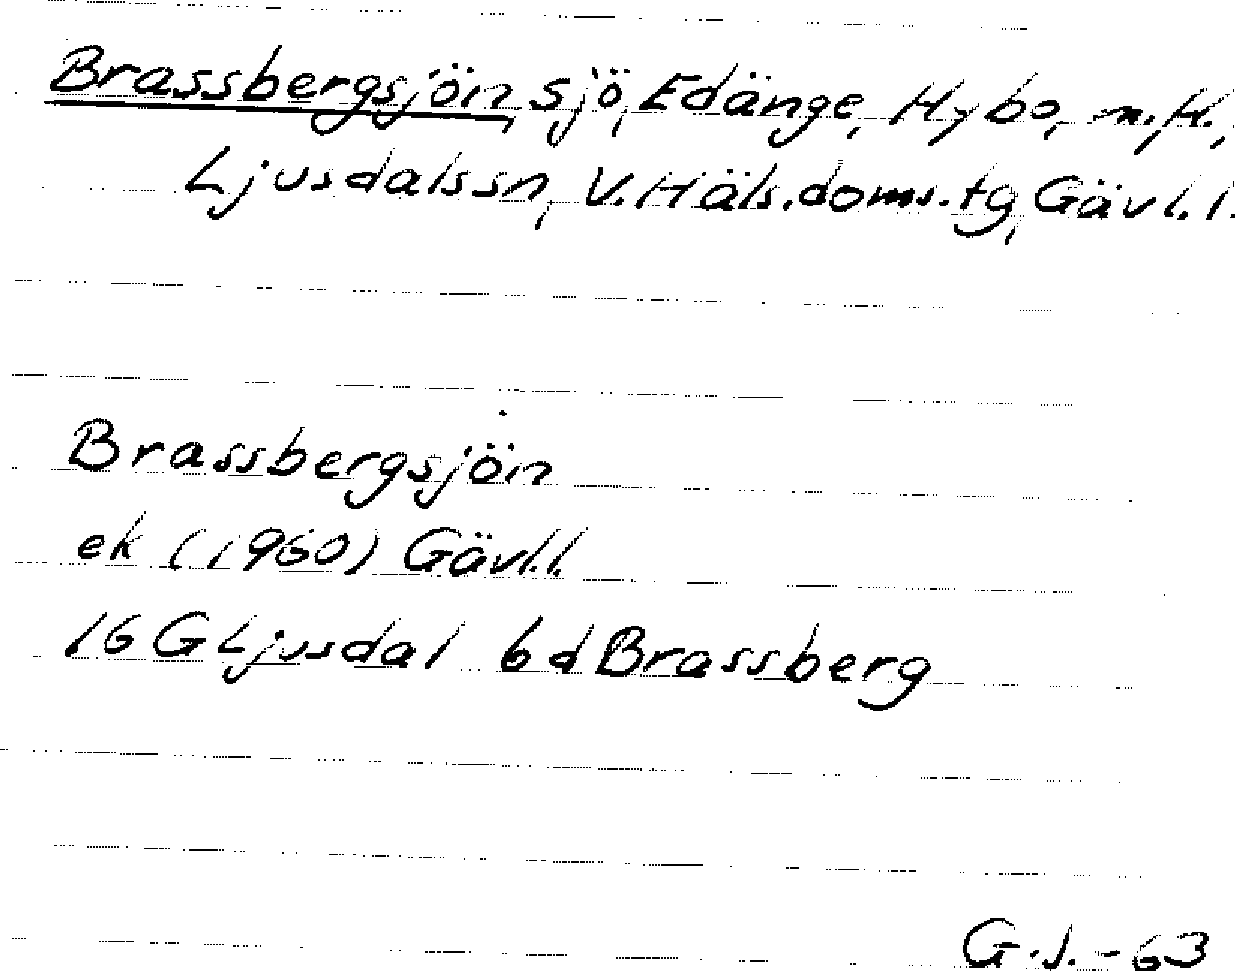 Brassbergsjön, sjö, Edänge, Hybo, m.fl.,
Ljusdalssn, V.Häls.doms.tg, Gävl.l.
Brassbergsjön
ek (1960) Gävl.l.
16G Ljusdal 6d Brassberg
G.J.-63